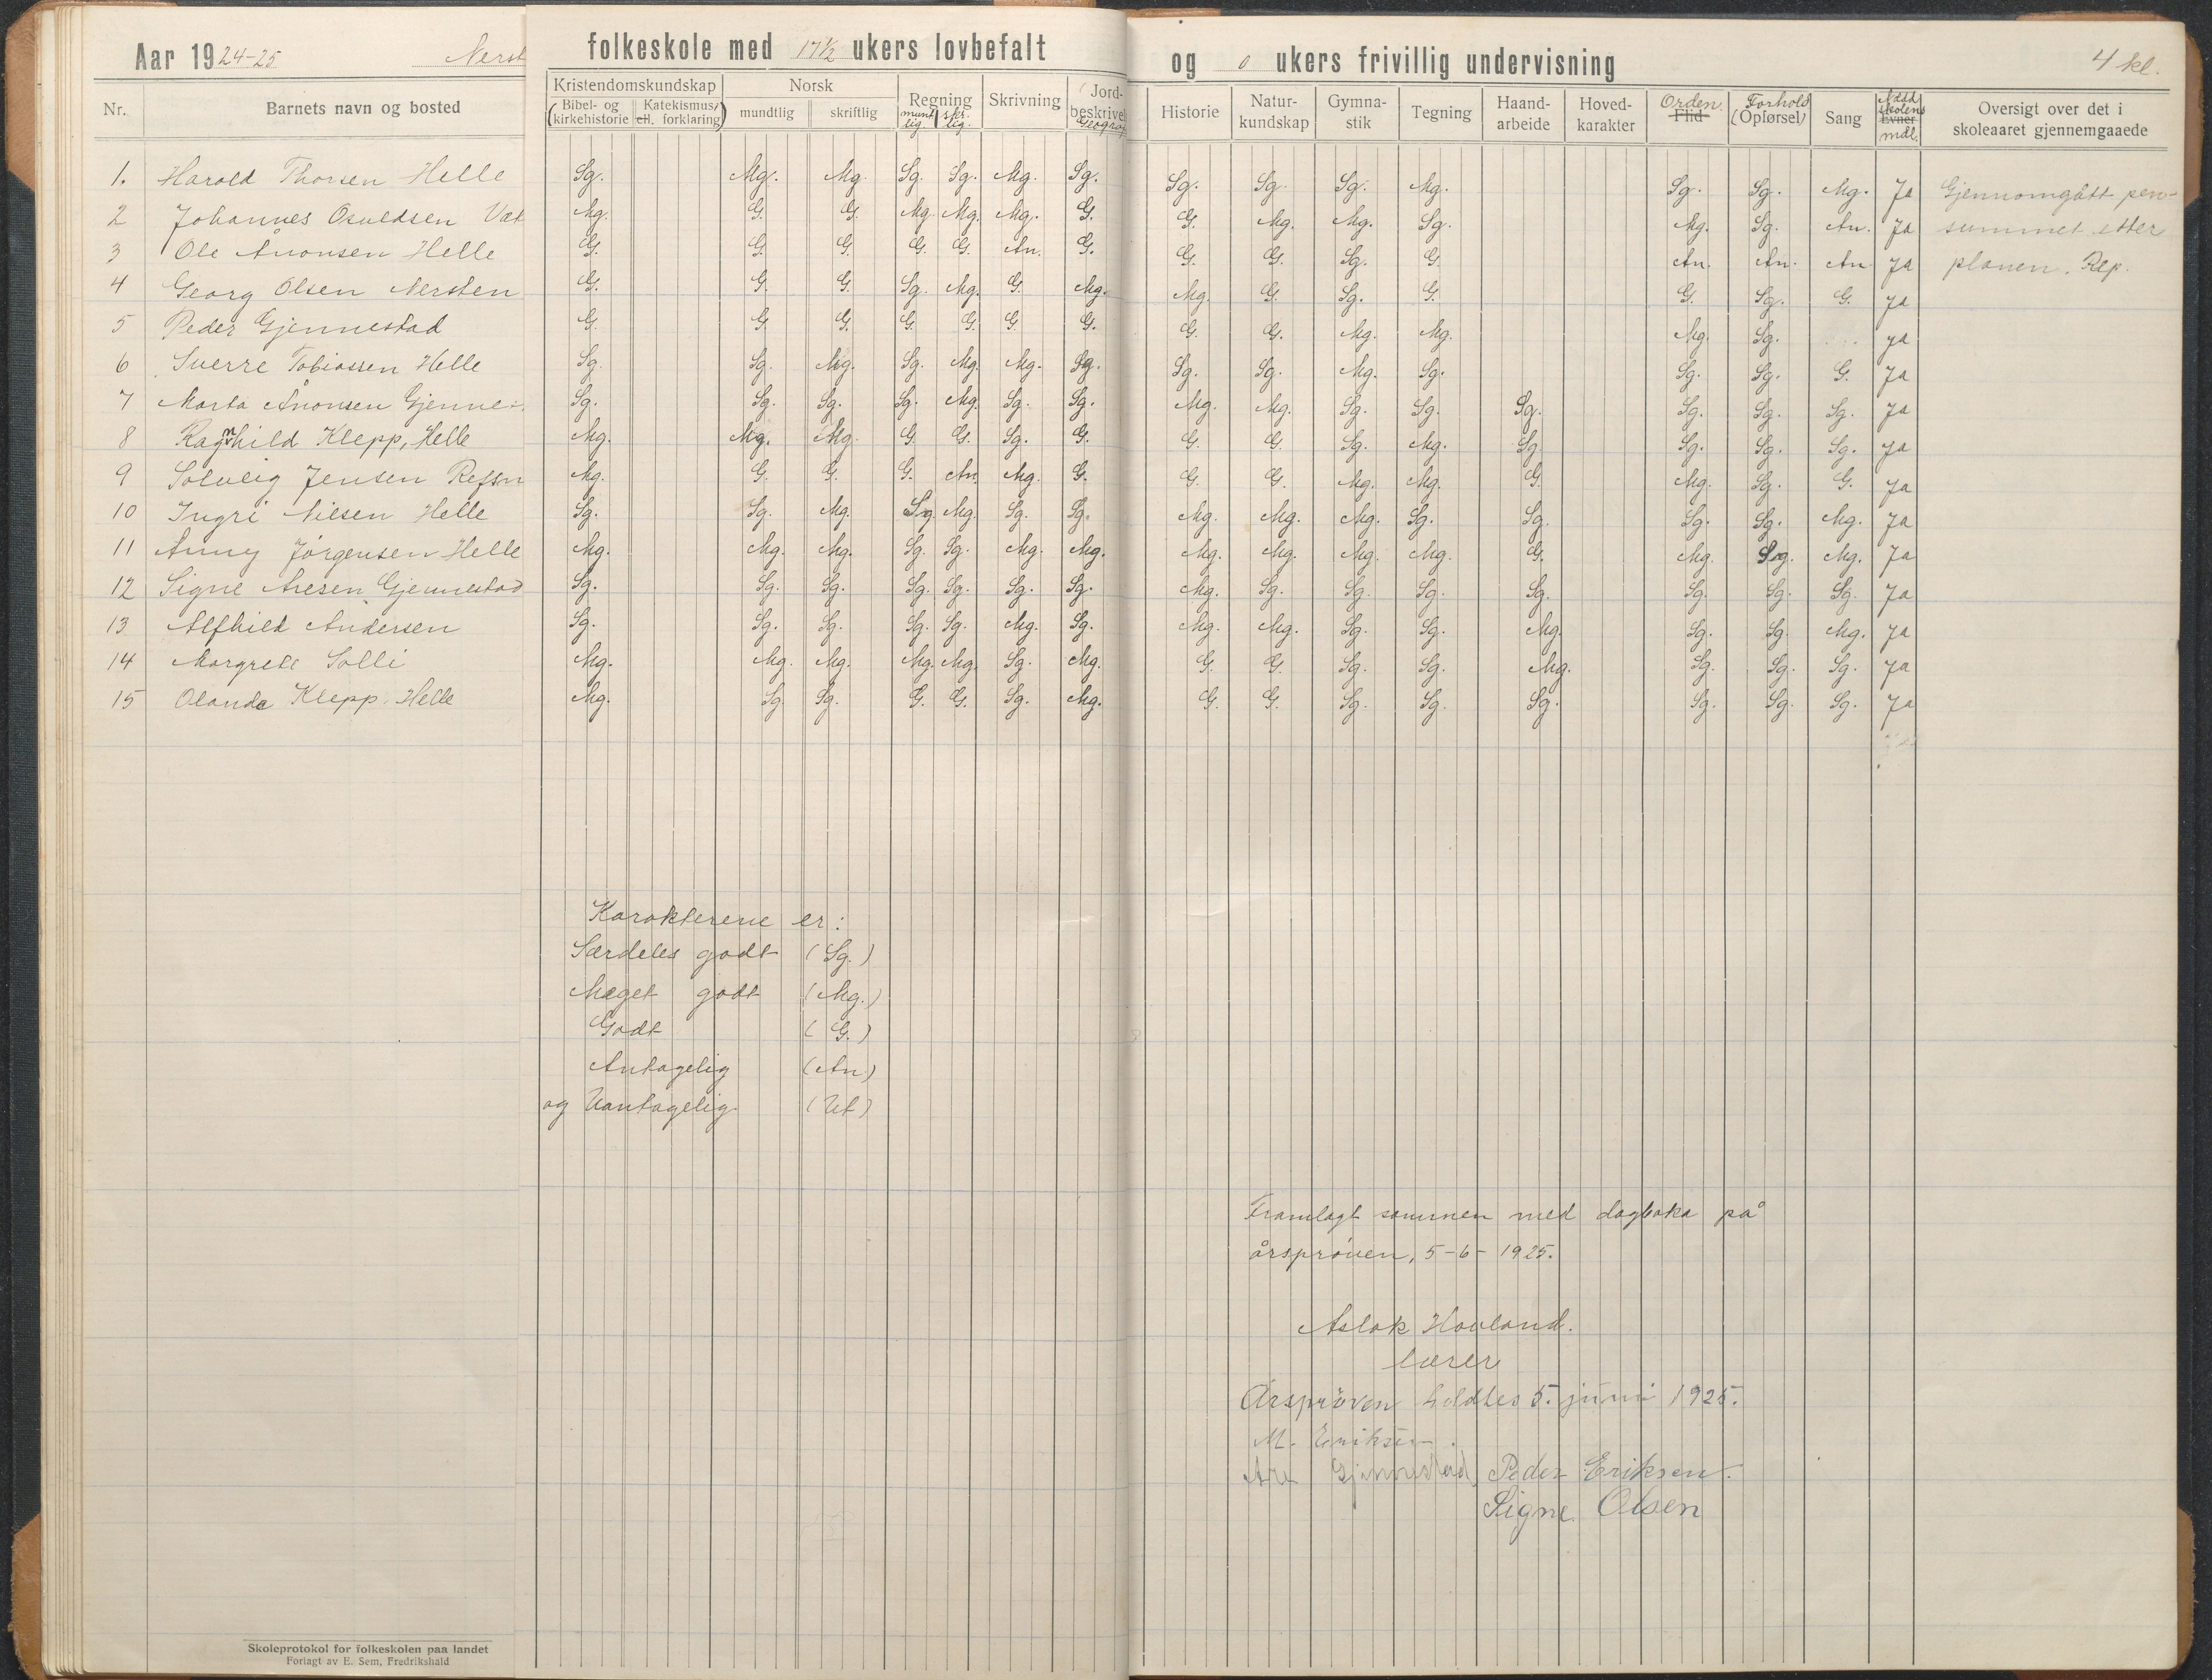 Aar 1924-25 Nerst folkeskole med 17½ ukers lovbefalt og 0 ukers frivillig undervisning 4 kl.
Nr. Barnets navn og bosted Kristendomskundskap (Bibel- og kirkehistorie Katekismus, ell. forklaring) Norsk mundtlig skriftlig Regning munt lig. skr. lig. Skrivning Jord- beskrivel Geograf Historie Natur- kundskap Gymna- stik Tegning Haand- arbeide Hoved- karakter Orden. Flid Forhold (Opførsel) Sang skolens Evner mdl. Oversigt over det i skoleaaret gjennemgaaede
1. Harald Thorsen Helle Sg. Mg. Mg. Sg. Sg. Mg. Sg. Sg. Sg. Sg. Mg. Sg. Sg. Mg. Ja Gjennomgått pen-
2 Johannes Osuldsen Vat Mg. G. G. Mg. Mg. Mg. G. G. Mg. Mg. Sg. Mg. Sg. An. Ja summet etter
3 Ole Ånonsen Helle G. G. G. G. G. An. G. G. G. Sg. G. An. An. An. Ja planen. Rep.
4 Georg Olsen Nersten G. G. G. Sg. Mg. G. Mg. Mg. G. Sg. G. G. Sg. G. Ja
5 Peder Gjennestad G. G. G. G. G. G. G. G. G. Mg. Mg. Mg. Sg. Ja
6 Sverre Tobiassen Helle Sg. Sg. Mg. Sg. Mg. Mg. Sg. Sg. Sg. Mg. Sg. Sg. Sg. G. Ja
7 Marta Ånonsen Gjennes. Sg. Sg. Sg. Sg. Mg. Sg. Sg. Mg. Mg. Sg. Sg. Sg. Sg. Sg. Sg. Ja
8 Ragnhild Klepp, Helle Mg. Mg. Mg. G. G. Sg. G. G. G. Sg. Mg. Sg. Sg. Sg. Sg. Ja
9 Solveig Jensen Refsn Mg. G. G. G. An. Mg. G. G. G. Mg. Mg. G. Mg. Sg. G. Ja
10 Ingri Nilsen Helle Sg. Sg. Mg. Sg. Mg. Sg. Sg. Mg. Mg. Mg. Sg. Sg. Sg. Sg. Mg. Ja
11 Anny Jørgensen Helle Mg. Mg. Mg. Sg. Sg. Mg. Mg. Mg. Mg. Mg. Mg. G. Mg. Sg. Mg. Ja
12 Signe Aresen Gjennestad Sg. Sg. Sg. Sg. Sg. Sg. Sg. Mg. Sg. Sg. Sg. Sg. Sg. Sg. Sg. Ja
13 Alfhild Andersen Sg. Sg. Sg. Sg. Sg. Mg. Sg. Mg. Mg. Sg. Sg. Mg. Sg. Sg. Mg. Ja
14 Margrete Solli Mg. Mg. Mg. Mg. Mg. Sg. Mg. G. G. Sg. Sg. Mg. Sg. Sg. Sg. Ja
15 Olanda Klepp. Helle Mg. Sg. Sg. G. G. Sg. Mg. G. G. Sg. Sg. Sg. Sg. Sg. Sg. Ja
Karakterene er:
Særdeles godt (Sg.)
Meget godt (Mg.)
Godt (G.)
Antagelig (An)
og Uantagelig (Ut)
Framlagt sammen med dagboka på
årsprøven, 5-6-1925.
Aslak Hovland.
lærer
Årsprøven holdtes 5. juni 1925.
M. Eriksen.
Are Gjennestad, Peder Eriksen.
Signe Olsen
Skoleprotokol for folkeskolen paa landet
Forlagt av E. Sem, Fredrikshald